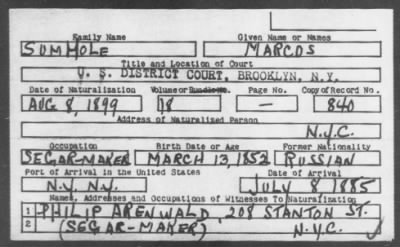 Family Name Given Name or Names
SUMMOLE MARCOS
Title and Location of Court
U. S. DISTRICT COURT, BROOKLYN, N.Y.
Date of Naturalization Volume or Bundle No. Page No. Copy of Record No.
AUG 8, 1899 18 — 840
Address of Naturalized Person
N.Y.C.
Occupation Birth Date or Age Former Nationality
SEGAR-MAKER MARCH 13, 1852 RUSSIAN
Port of Arrival in the United States Date of Arrival
N.Y. N.Y. JULY 8 1885
Names, Addresses and Occupations of Witnesses To Naturalization
1 PHILIP ARENWALD, 208 STANTON ST.
2 (SEGAR-MAKER) N.Y.C.